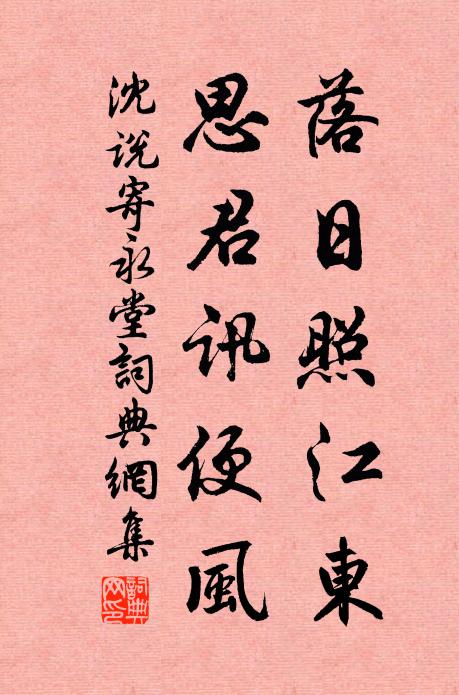 落日照江東
思君訊便風
沈說寄永堂詞典網集
詞典網印